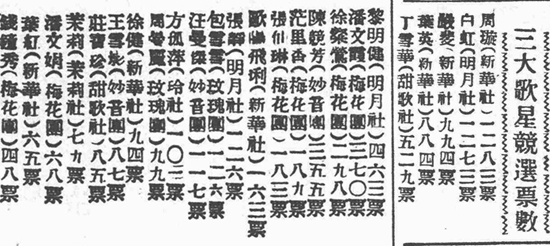 三大歌星競選票數
周璇(新華社)一二八三票
白虹(明月社)一一七三票
嚴斐(新華社)九九四票
葉英(新華社)八八四票
丁雪華(甜歌社)五二九票
黎明健(明月社)四六三票
潘文霞(梅花團)三七〇票
徐粲鶯(梅花團)二九八票
陳鏡芳(妙音團)二五五票
茫里香(梅花團)一八九票
張仙琳(梅花團)一八三票
歐陽飛琍(新華社)一六三票
張靜(明月社)一二六票
包雪雪(玫瑰團)一二二票
汪曼傑(妙音團)一一七票
方孤萍(哈社)一〇三票
周曼麗(玫瑰團)九九票
徐健(新華社)九四票
王雪影(妙音團)八七票
莊雪珍(甜歌社)八五票
茉莉(茉莉社)七九票
潘文娟(梅花團)六八票
葉紅(新華社)六五票
錢鍾秀(梅花團)四八票